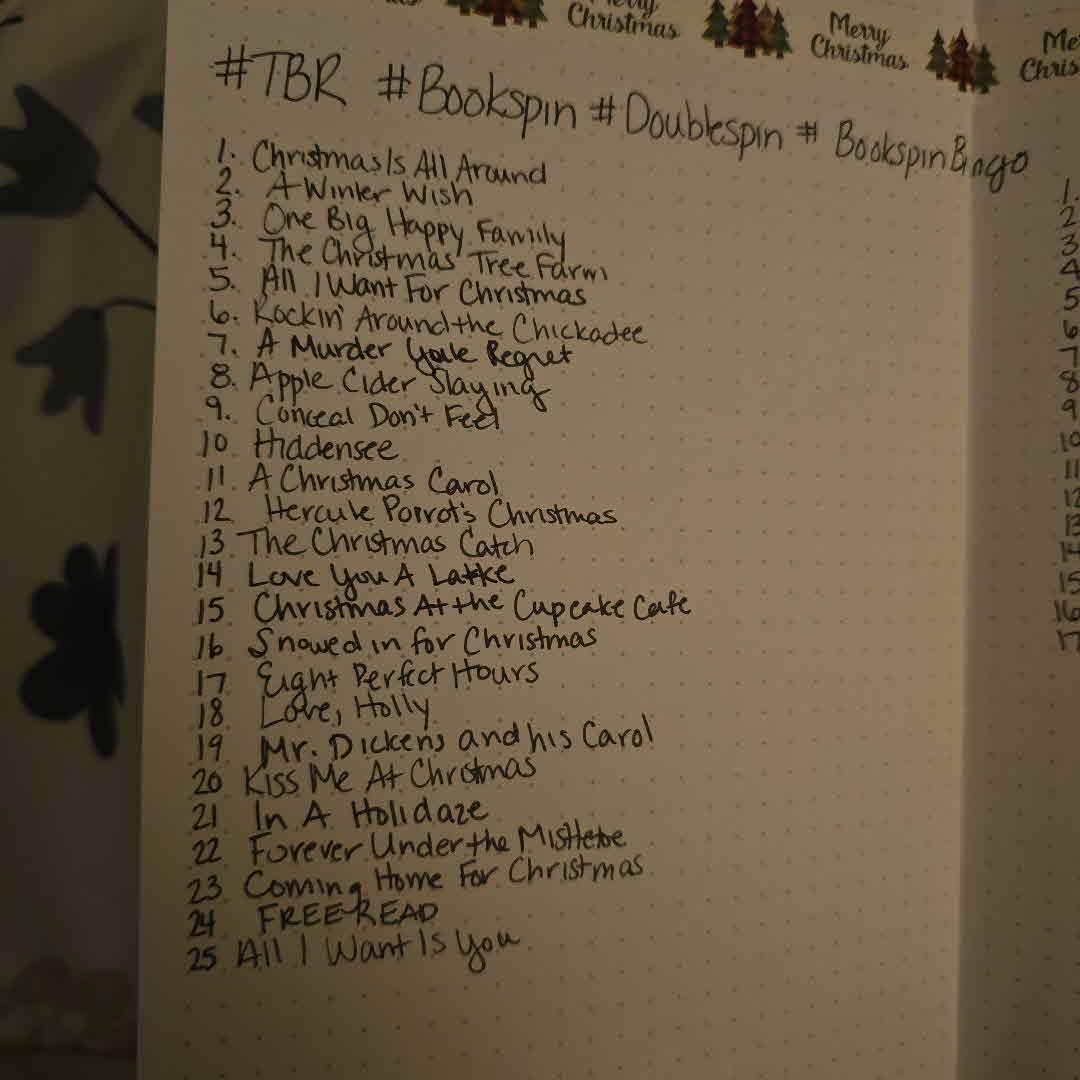 Merry
Christmas
Merry
Christmas
#TBR #Bookspin #Doublespin #BookspinBingo
1. Christmas Is All Around
2. A Winter Wish
3. One Big Happy Family
4. The Christmas Tree Farm
5. All I Want For Christmas
6. Rockin' Around the Chickadee
7. A Murder Yule Regret
8. Apple Cider Slaying
9. Conceal Don't Feel
10 Hiddensee
11. A Christmas Carol
12 Hercule Poirot's Christmas
13. The Christmas Catch
14 Love You A Latke
15 Christmas At the Cupcake Cafe
16 Snowed in for Christmas
17 Eight Perfect Hours
18 Love, Holly
19 Mr. Dickens and his Carol
20 Kiss Me At Christmas
21 In A Holidaze
22 Forever Under the Mistletoe
23 Coming Home For Christmas
24 FREE READ
25 All I Want Is You
1.
2
3
4
5
6
7
8
9
10
11
12
13
14
15
16
17